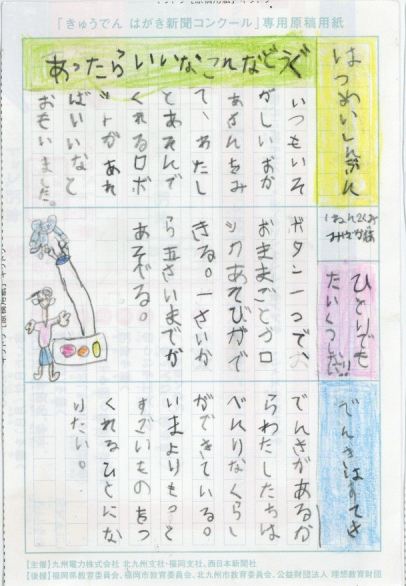 「きゅうでん はがき新聞コンクール」専用原稿用紙
はつめいしんぶん
あったらいいなこんなどうぐ
いつもいそ
がしいおか
あさんをみ
て、わたし
とあそんで
くれるロボ
ットがあれ
ばいいなと
おもいました。
ひとりでも
たいくつだ!!
ボタン一つで、
おままごとブロ
ックあそびがで
きる。一さいか
ら五さいまでが
あそべる。
でんきはすてき
でんきがあるか
らわたしたちは
べんりなくらし
ができている。
いまよりもっと
すごいものをつ
くれるひとにな
りたい。
【主催】九州電力株式会社 北九州支社・福岡支社、西日本新聞社
【後援】福岡県教育委員会、福岡市教育委員会、北九州市教育委員会、公益財団法人 理想教育財団